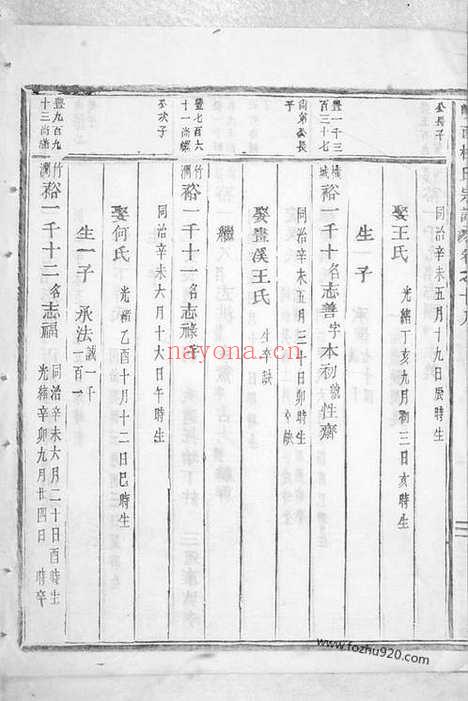 公長子
同治辛未五月十九日辰時生
娶王氏 光緒丁亥九月初三日亥時生
生一子
豊一千三百三十七
南弟公長子
橫城 裕一千十名志善字本初號性齋
同治辛未五月三十日
娶畫溪王氏 生卒缺
繼
豊七百六十一尚
公次子
竹澗 裕一千十一名志祿字
同治辛未六月十六日午時生
娶何氏 光緒乙酉十月十二日巳時生
生一子 承法 誠一千一百一
豊九百九十三尚
竹澗 裕一千十二名志福
同治辛未六月二十日酉時生
光緒辛卯九月廿四日 時卒
nayona.cn
www.fozhu920.com